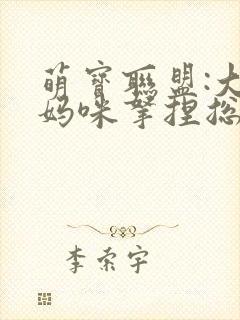 萌寶聯盟:大
媽咪拿捏總
李索宇